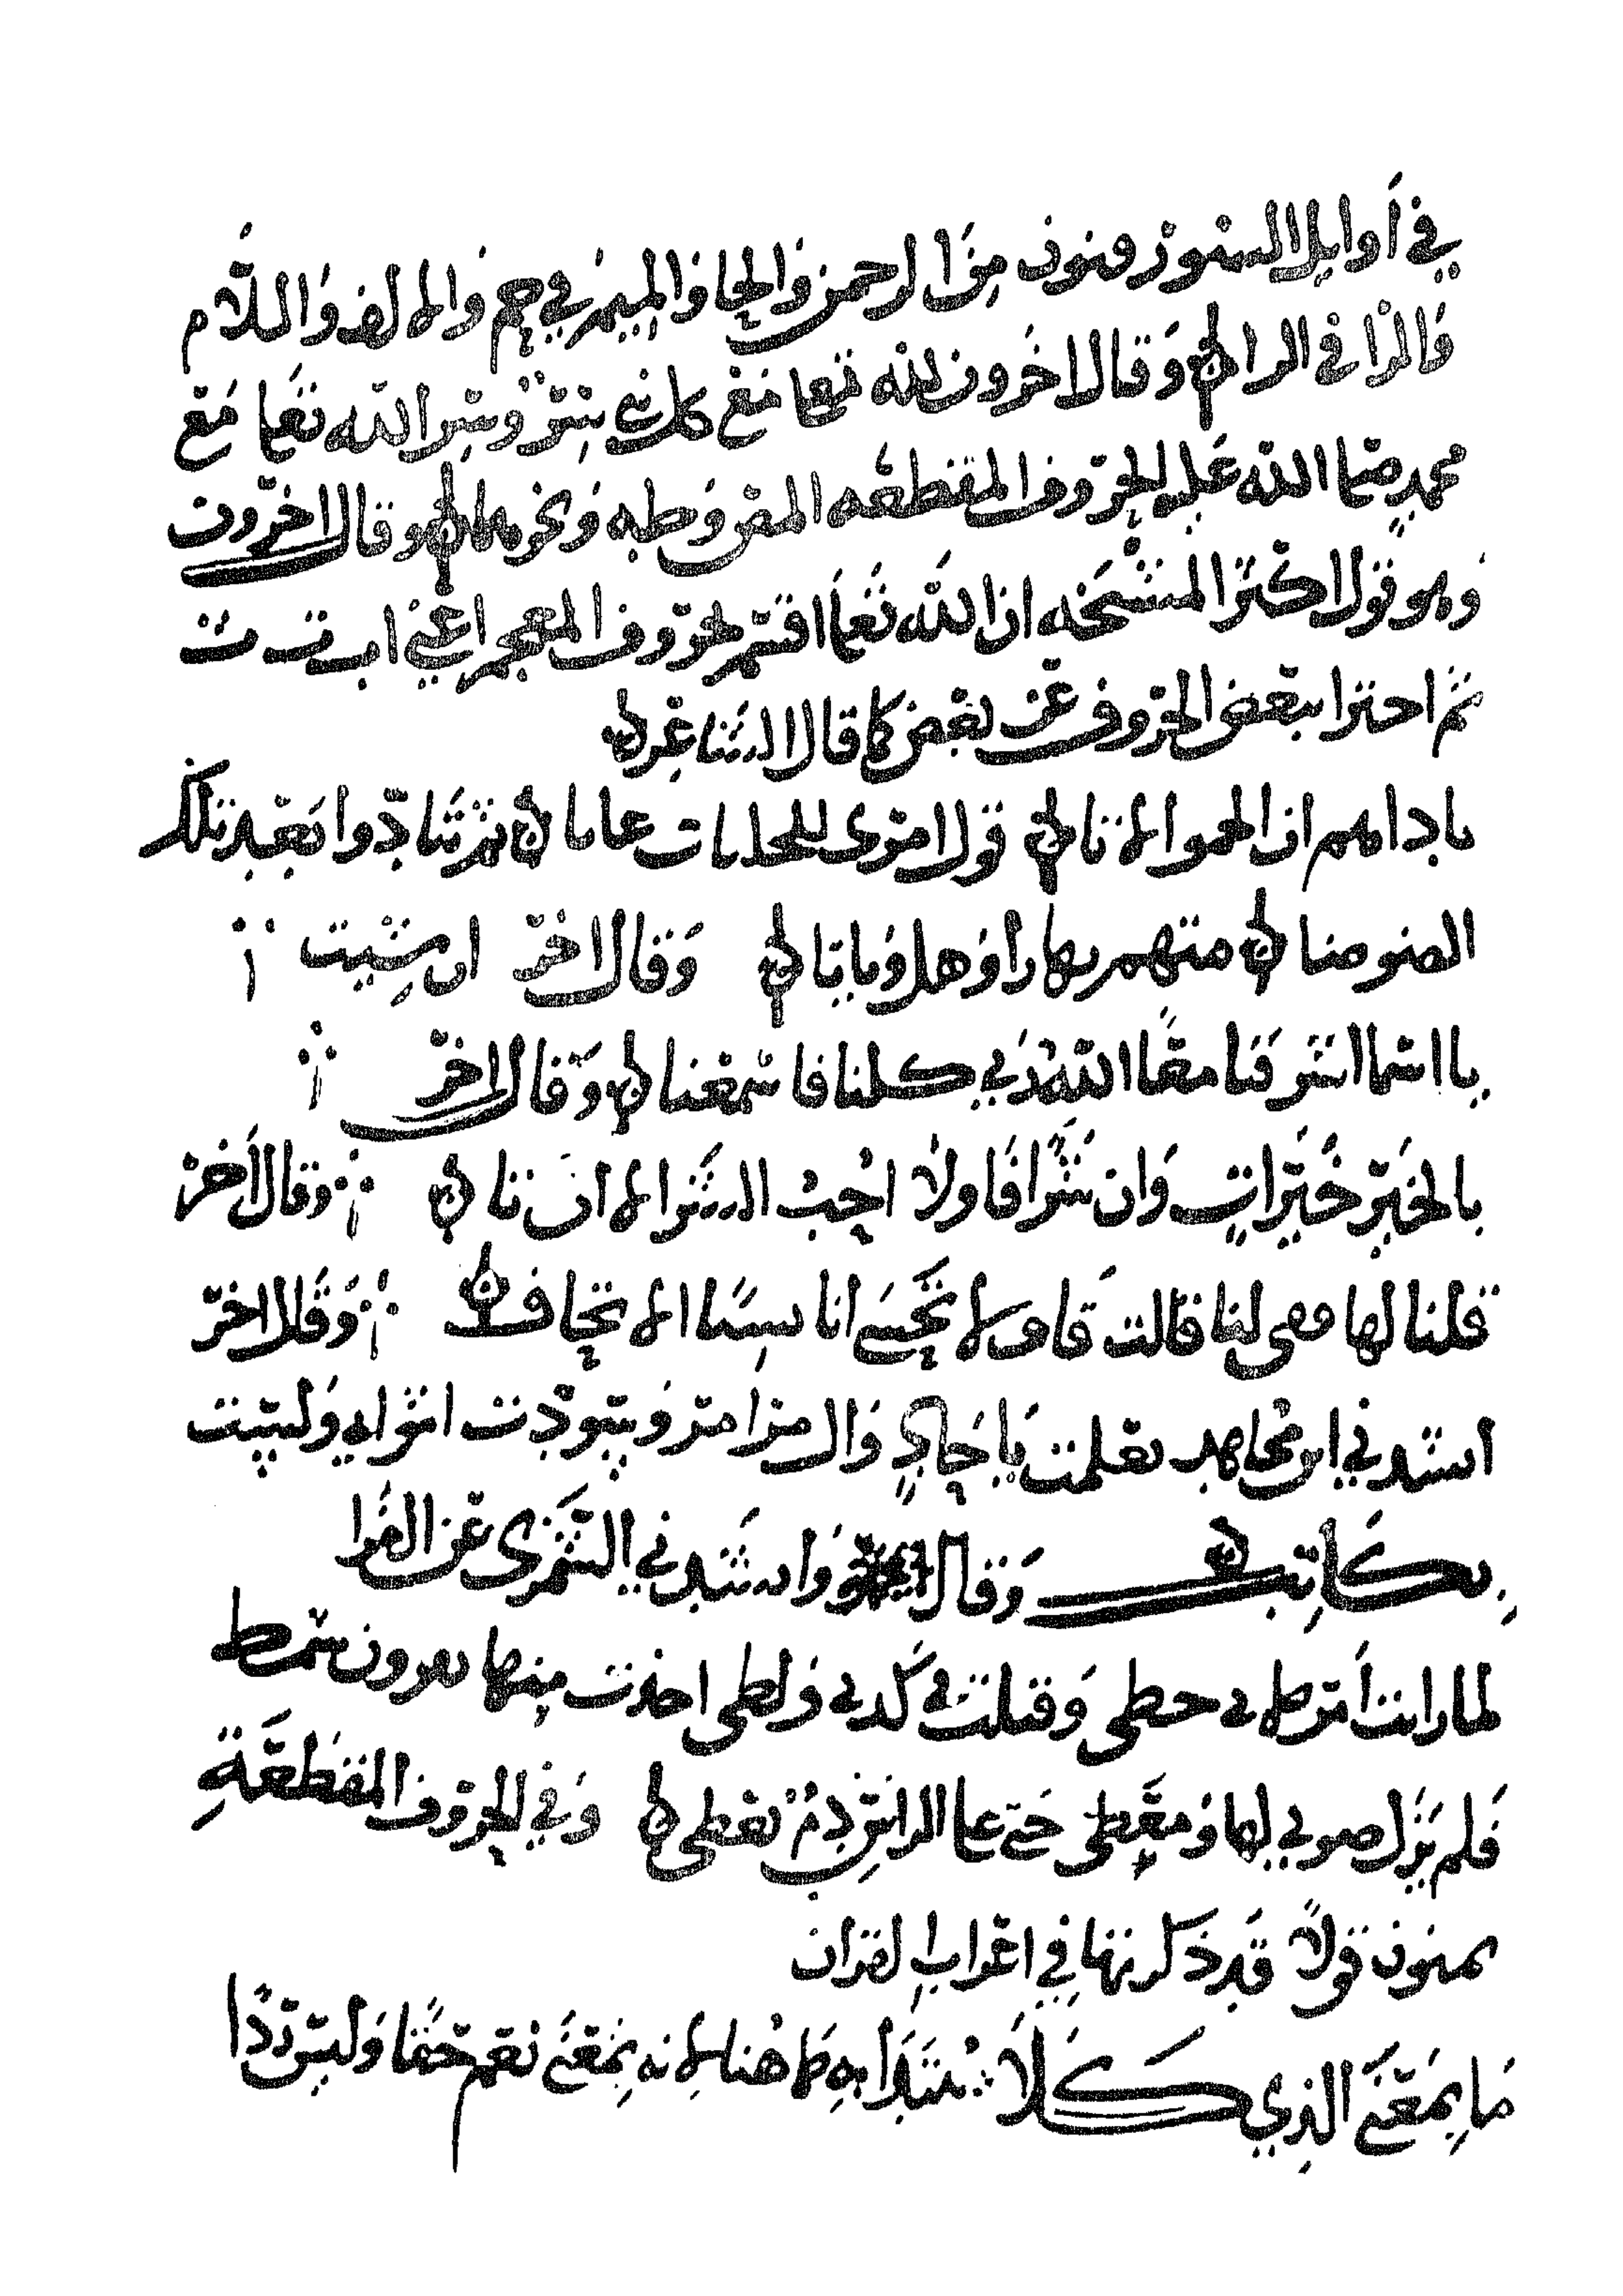 في أوايل السور فنون من الرحمن والحا والميم في حم والالف واللام
والرا في الر وقال اخرون لله تعا مع كل نبي سر وسر الله تعا مع
محمد صلى الله عليه الحروف المقطعه وقال اخرون
وهو قول اكثر المشيخه ان الله تعا اقسم بحروف المعجم اعني ا ب ت ث
ثم اجتزا ببعض الحروف عن بعض كما قال الشاعر
ناداهم ان الجموا الا تا قول امرى للحلبات ثم تنادوا بعد تلك
الضوضا منهم بهاب او هل ويا يا وقال اخر ان شيت
يا اسما اشرفنا معا الله ربي كلنا فاسمعنا وقال اخر
بالخير خيرات وان شرا فا ولا احب الشر الا ان تا وقال اخر
قلنا لها قفي لنا قالت قاف لا تحسبي انا نسينا الايجاف وقال اخر
انشدني ابن مجاهد تعلمت باجاد وال مرامر وسودت اثوابي ولست
بكاتب وقال وانشدني السمري عن الفرا
لما رايت امرها في حطي وفنكت في كذب ولط اخذت منها بقرون شمط
فلم يزل صوبي بها ومعطي حتى علا الراس دم يغطي وفي الحروف المقطعة
قولا قد ذكرتها في اعراب القران
ما بمعنى الذي كلا يبتدأ به هاهنا لانه بمعنى نعم حقا وليس ردا